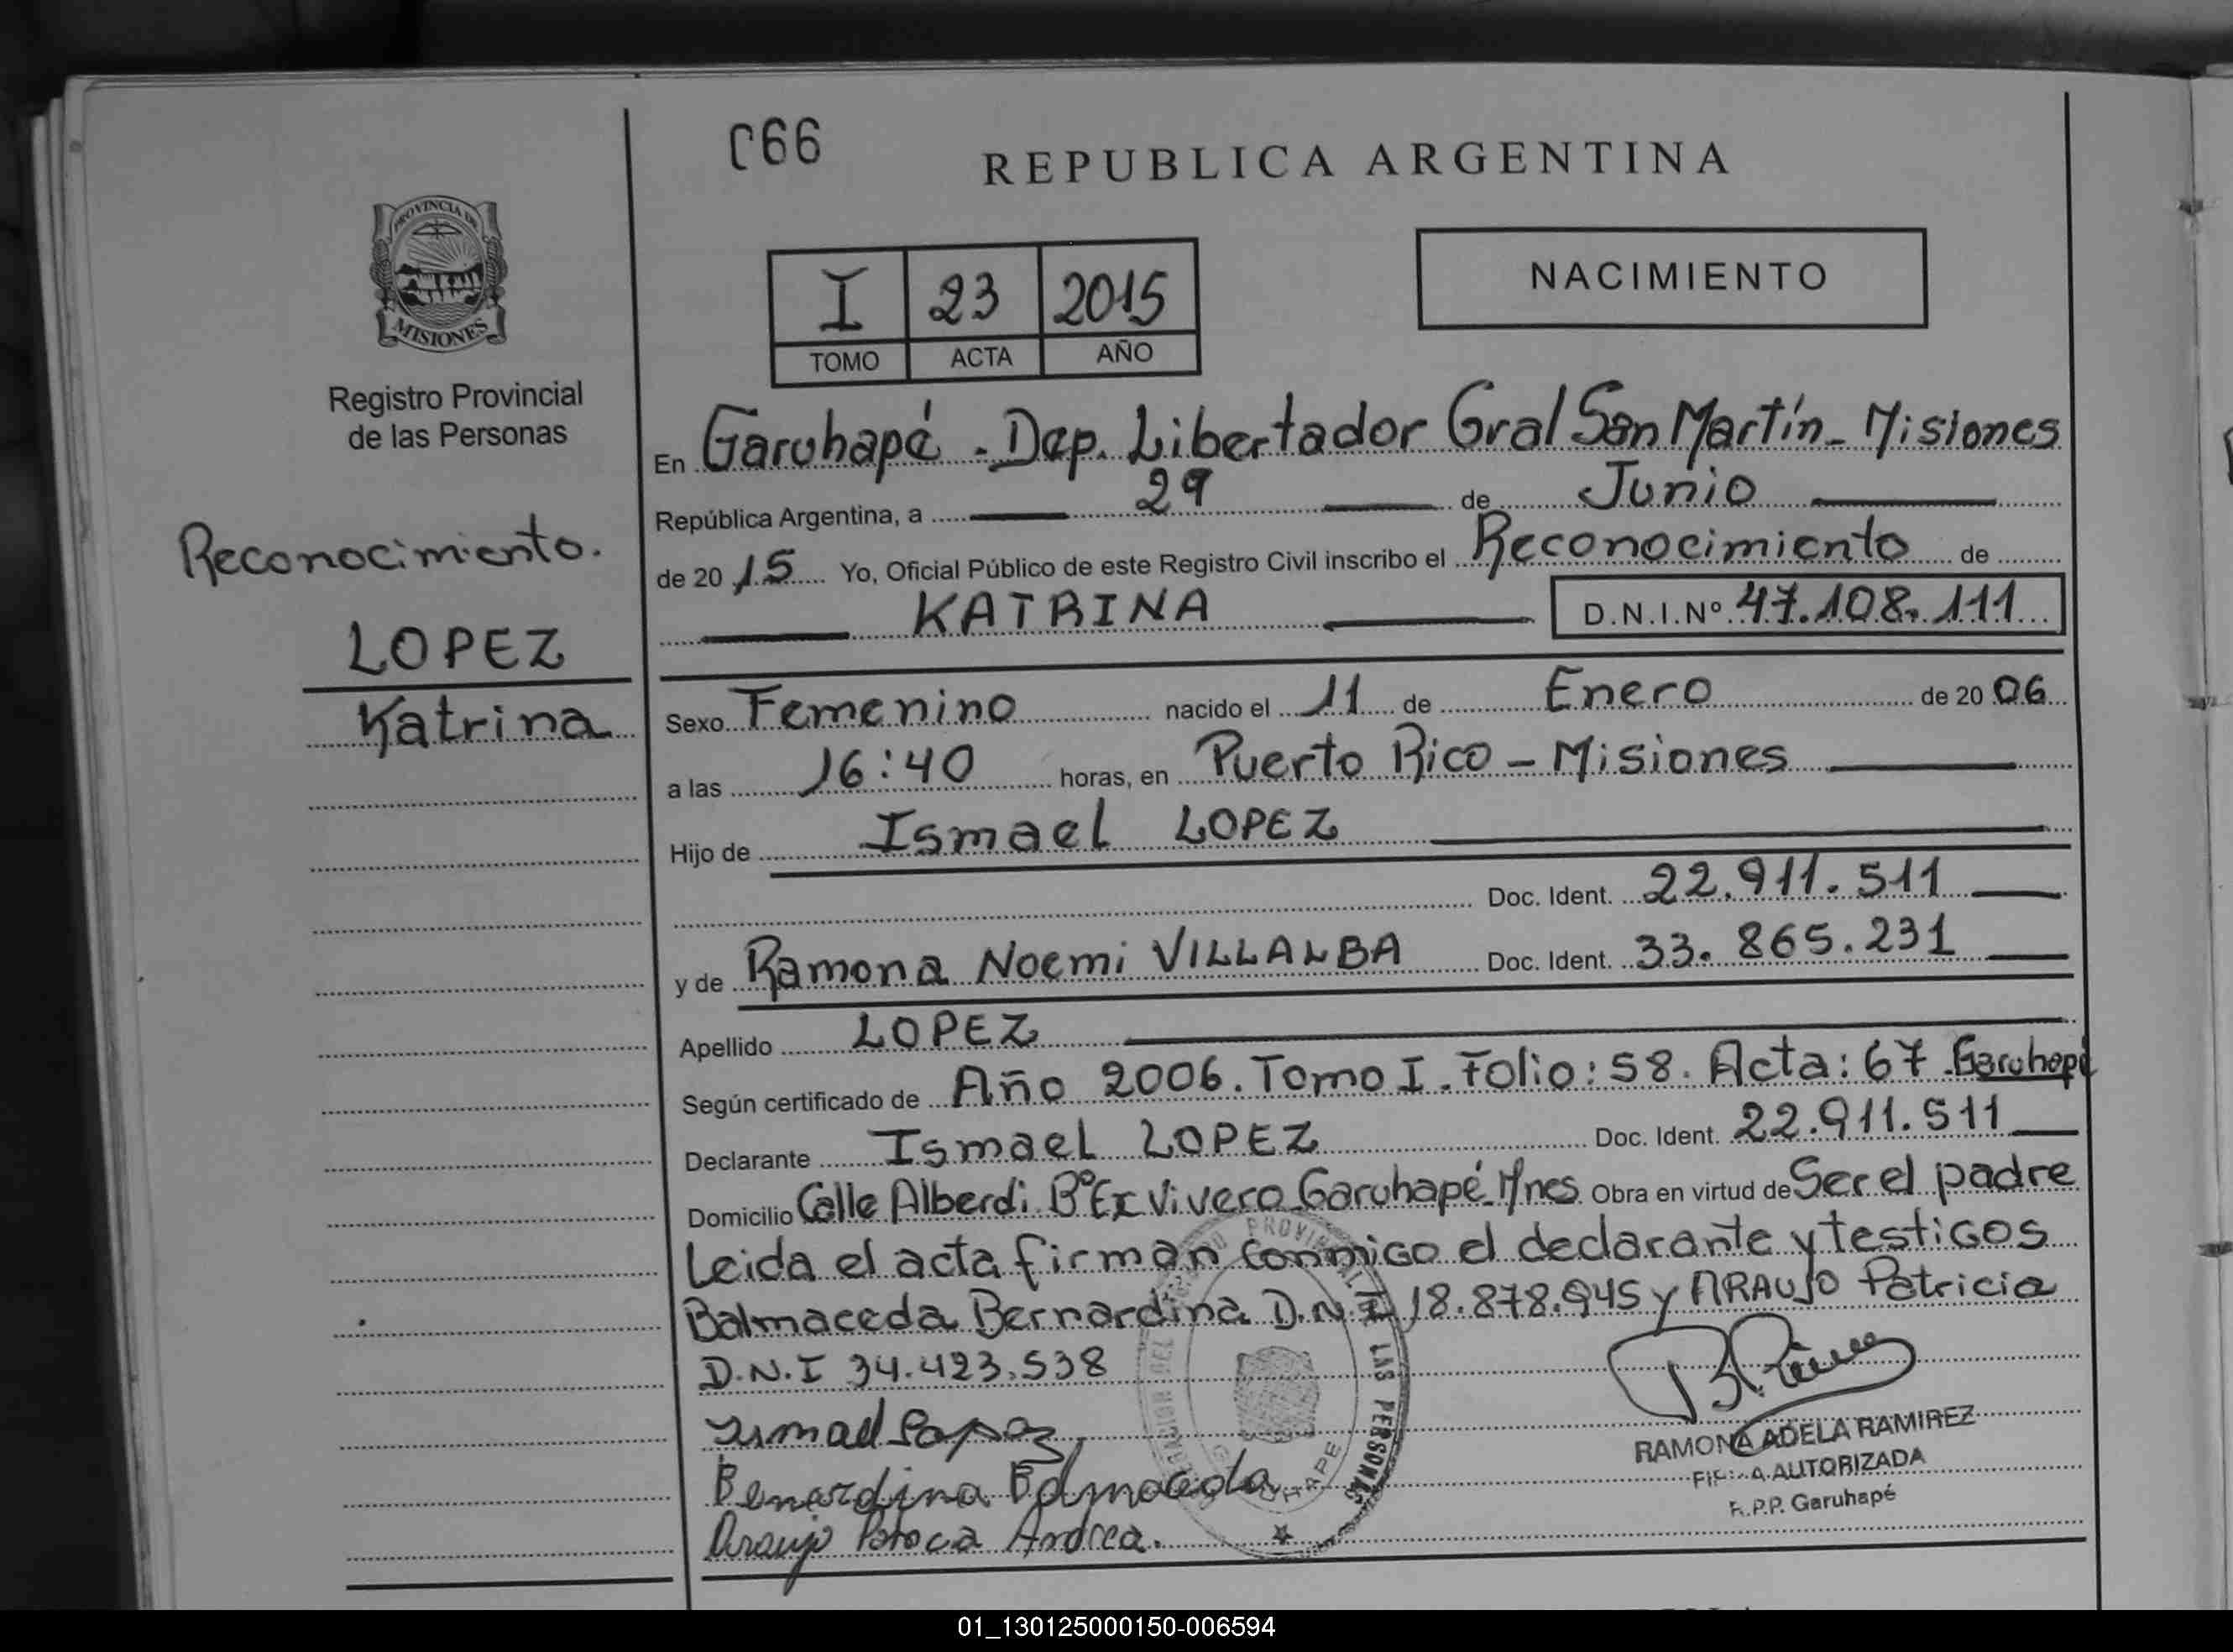 066
REPUBLICA ARGENTINA
PROVINCIA DE
MISIONES
Registro Provincial
de las Personas
I 23 2015
TOMO ACTA AÑO
NACIMIENTO
Reconocimiento.
LOPEZ
Katrina
En Garuhapé - Dep. Libertador Gral San Martín - Misiones
República Argentina, a 29 de Junio
de 2015 Yo, Oficial Público de este Registro Civil inscribo el Reconocimiento de
KATRINA D.N.I.Nº 47.108.111
Sexo Femenino nacido el 11 de Enero de 2006
a las 16:40 horas, en Puerto Rico - Misiones
Hijo de Ismael LOPEZ
Doc. Ident. 22.911.511
y de Ramona Noemi VILLALBA Doc. Ident. 33.865.231
Apellido LOPEZ
Según certificado de Año 2006. Tomo I. Folio: 58. Acta: 67 Garuhapé
Declarante Ismael LOPEZ Doc. Ident. 22.911.511
Domicilio Calle Alberdi Bº Ex Vivero Garuhapé Mnes Obra en virtud de Ser el padre
Leida el acta firman conmigo el declarante y testigos
Balmaceda Bernardina D.N.I 18.878.945 y ARAUJO Patricia
D.N.I 34.423.538
Ismael Lopez
Benardina Balmaceda
Araujo Andrea.
PROVINCIAL DE LAS PERSONAS
RAMONA ADELA RAMIREZ
FIRMA AUTORIZADA
R.P.P. Garuhapé
01_130125000150-006594